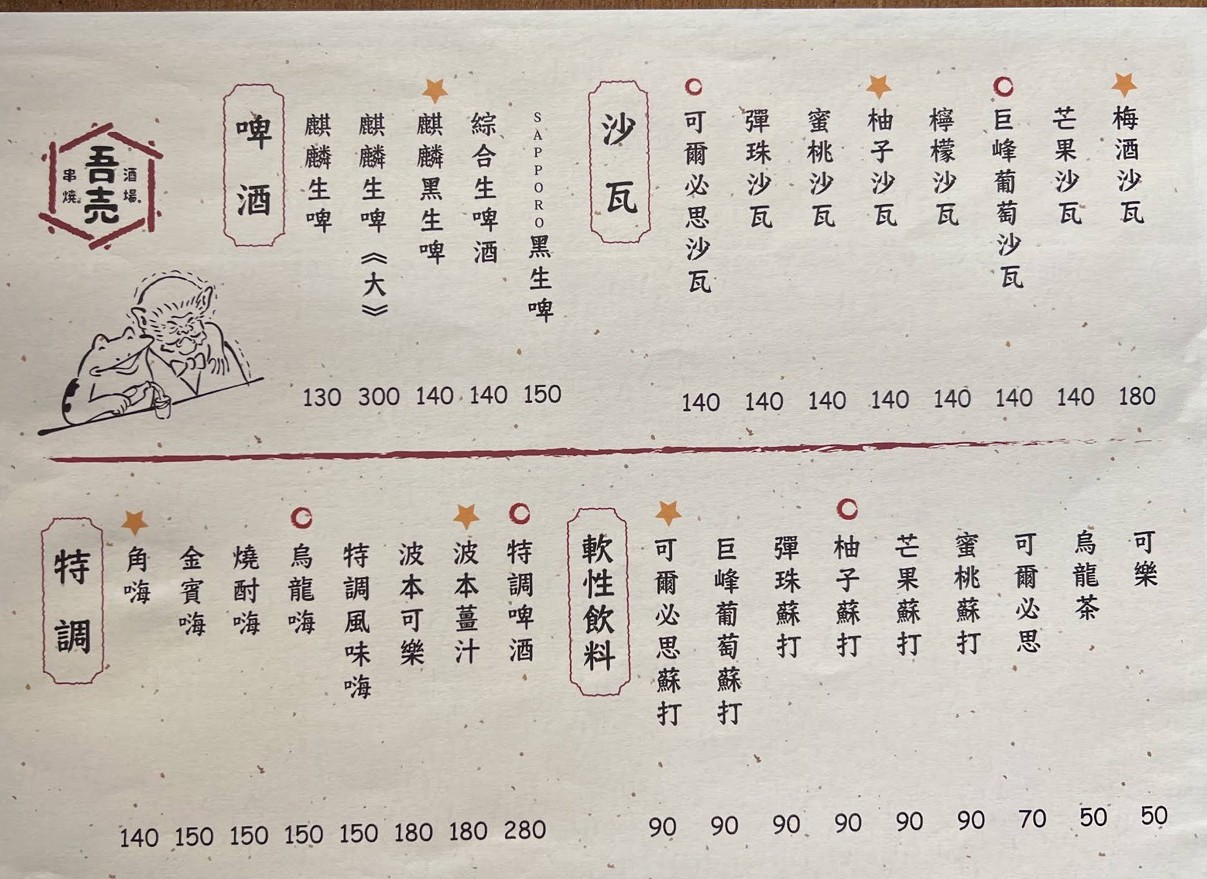 吾売
串燒
酒場
啤酒
麒麟生啤 130
麒麟生啤《大》 300
麒麟黑生啤 140
綜合生啤酒 140
SAPPORO黑生啤 150
沙瓦
可爾必思沙瓦 140
彈珠沙瓦 140
蜜桃沙瓦 140
柚子沙瓦 140
檸檬沙瓦 140
巨峰葡萄沙瓦 140
芒果沙瓦 140
梅酒沙瓦 180
特調
角嗨 140
金賓嗨 150
燒酎嗨 150
烏龍嗨 150
特調風味嗨 150
波本可樂 180
波本薑汁 180
特調啤酒 280
軟性飲料
可爾必思蘇打 90
巨峰葡萄蘇打 90
彈珠蘇打 90
柚子蘇打 90
芒果蘇打 90
蜜桃蘇打 90
可爾必思 70
烏龍茶 50
可樂 50